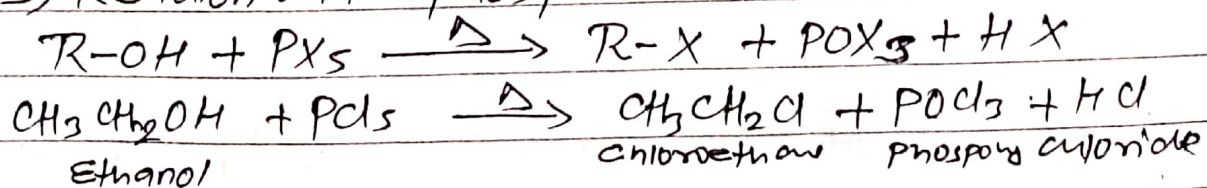 R-OH + PX5 —Δ→ R-X + POX3 + HX
CH3CH2OH + PCl5 —Δ→ CH3CH2Cl + POCl3 + HCl
Ethanol Chloroethane Phospory chloride